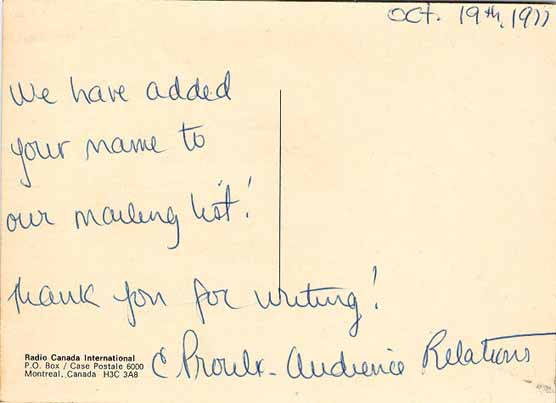 Oct. 19th, 1977
We have added
your name to
our mailing list!
Thank you for writing!
C Proulx - Audience Relations
Radio Canada International
P.O. Box / Case Postale 6000
Montreal, Canada H3C 3A8